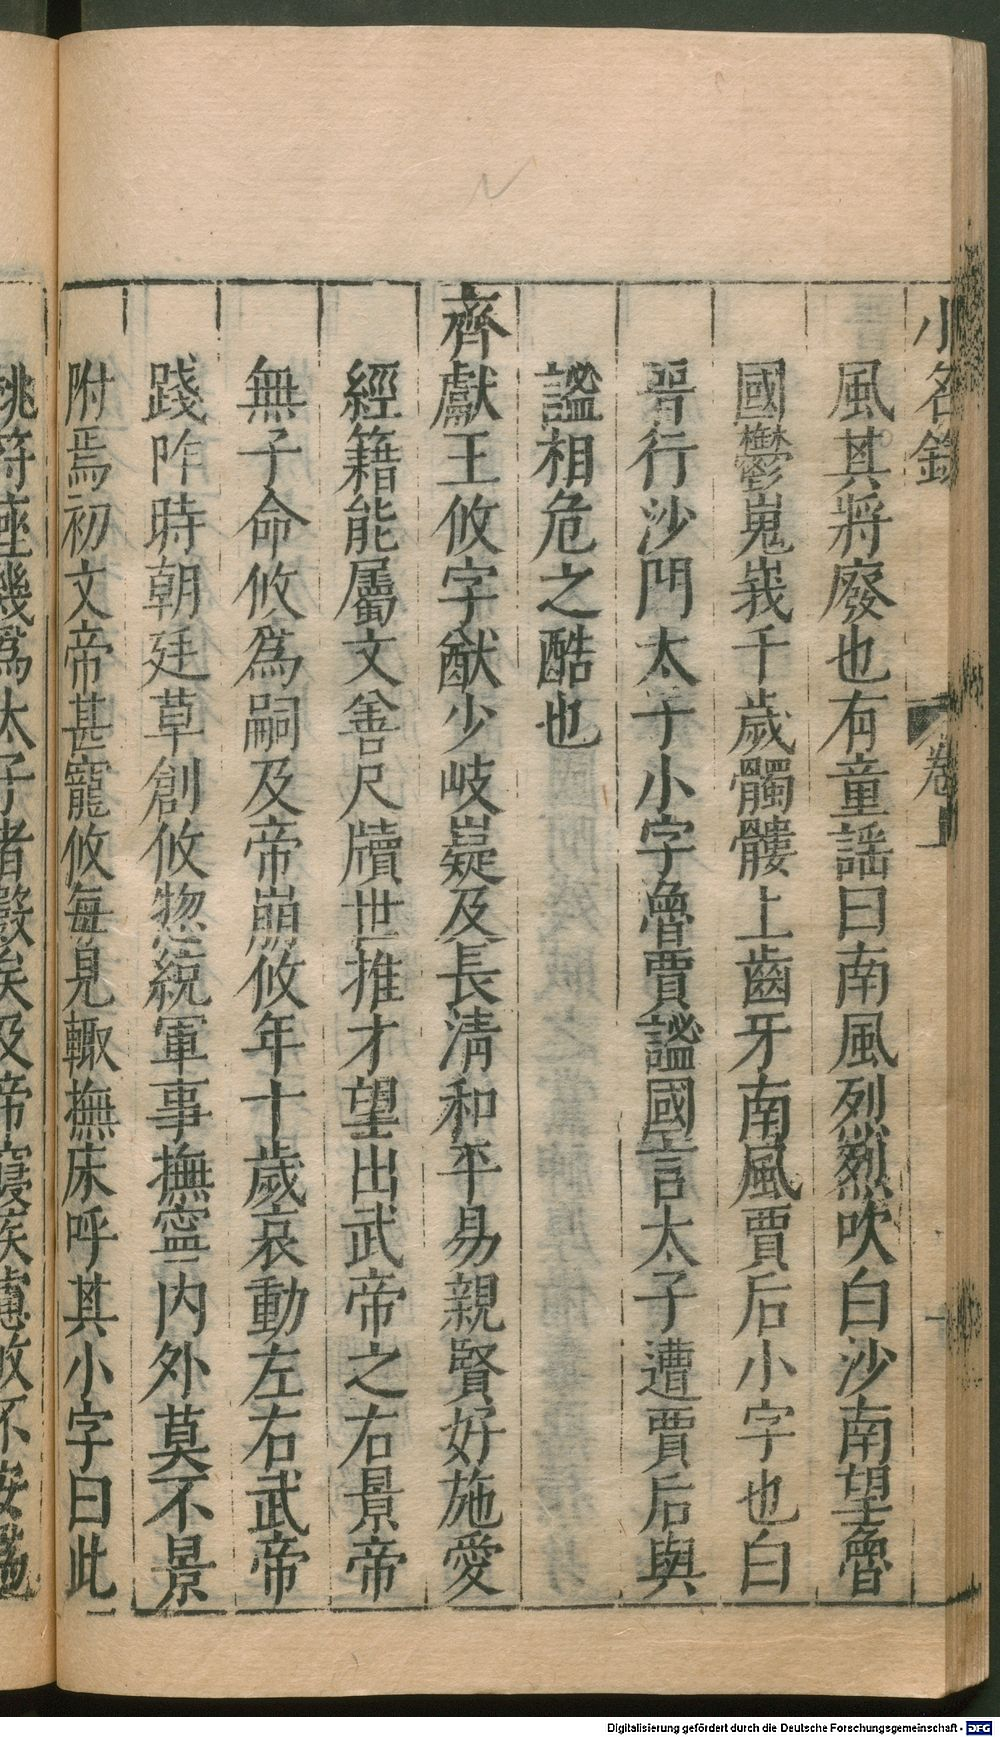 小名錄 卷上
風其將廢也有童謡曰南風烈烈吹白沙南望魯
國鬱嵬峩千歲髑髏上齒牙南風賈后小字也白
晉行沙門太子小字魯賈謐國言太子遭賈后與
謐相危之酷也
齊獻王攸字猷少岐嶷及長清和平易親賢好施愛
經籍能屬文善尺牘世推才望出武帝之右景帝
無子命攸為嗣及帝崩攸年十歲哀動左右武帝
踐阼時朝廷草創攸惣統軍事撫寧内外莫不景
附焉初文帝甚寵攸每見輙撫床呼其小字曰此
桃符座幾為太子者數矣及帝寢疾慮攸不安爲
Digitalisierung gefördert durch die Deutsche Forschungsgemeinschaft - DFG